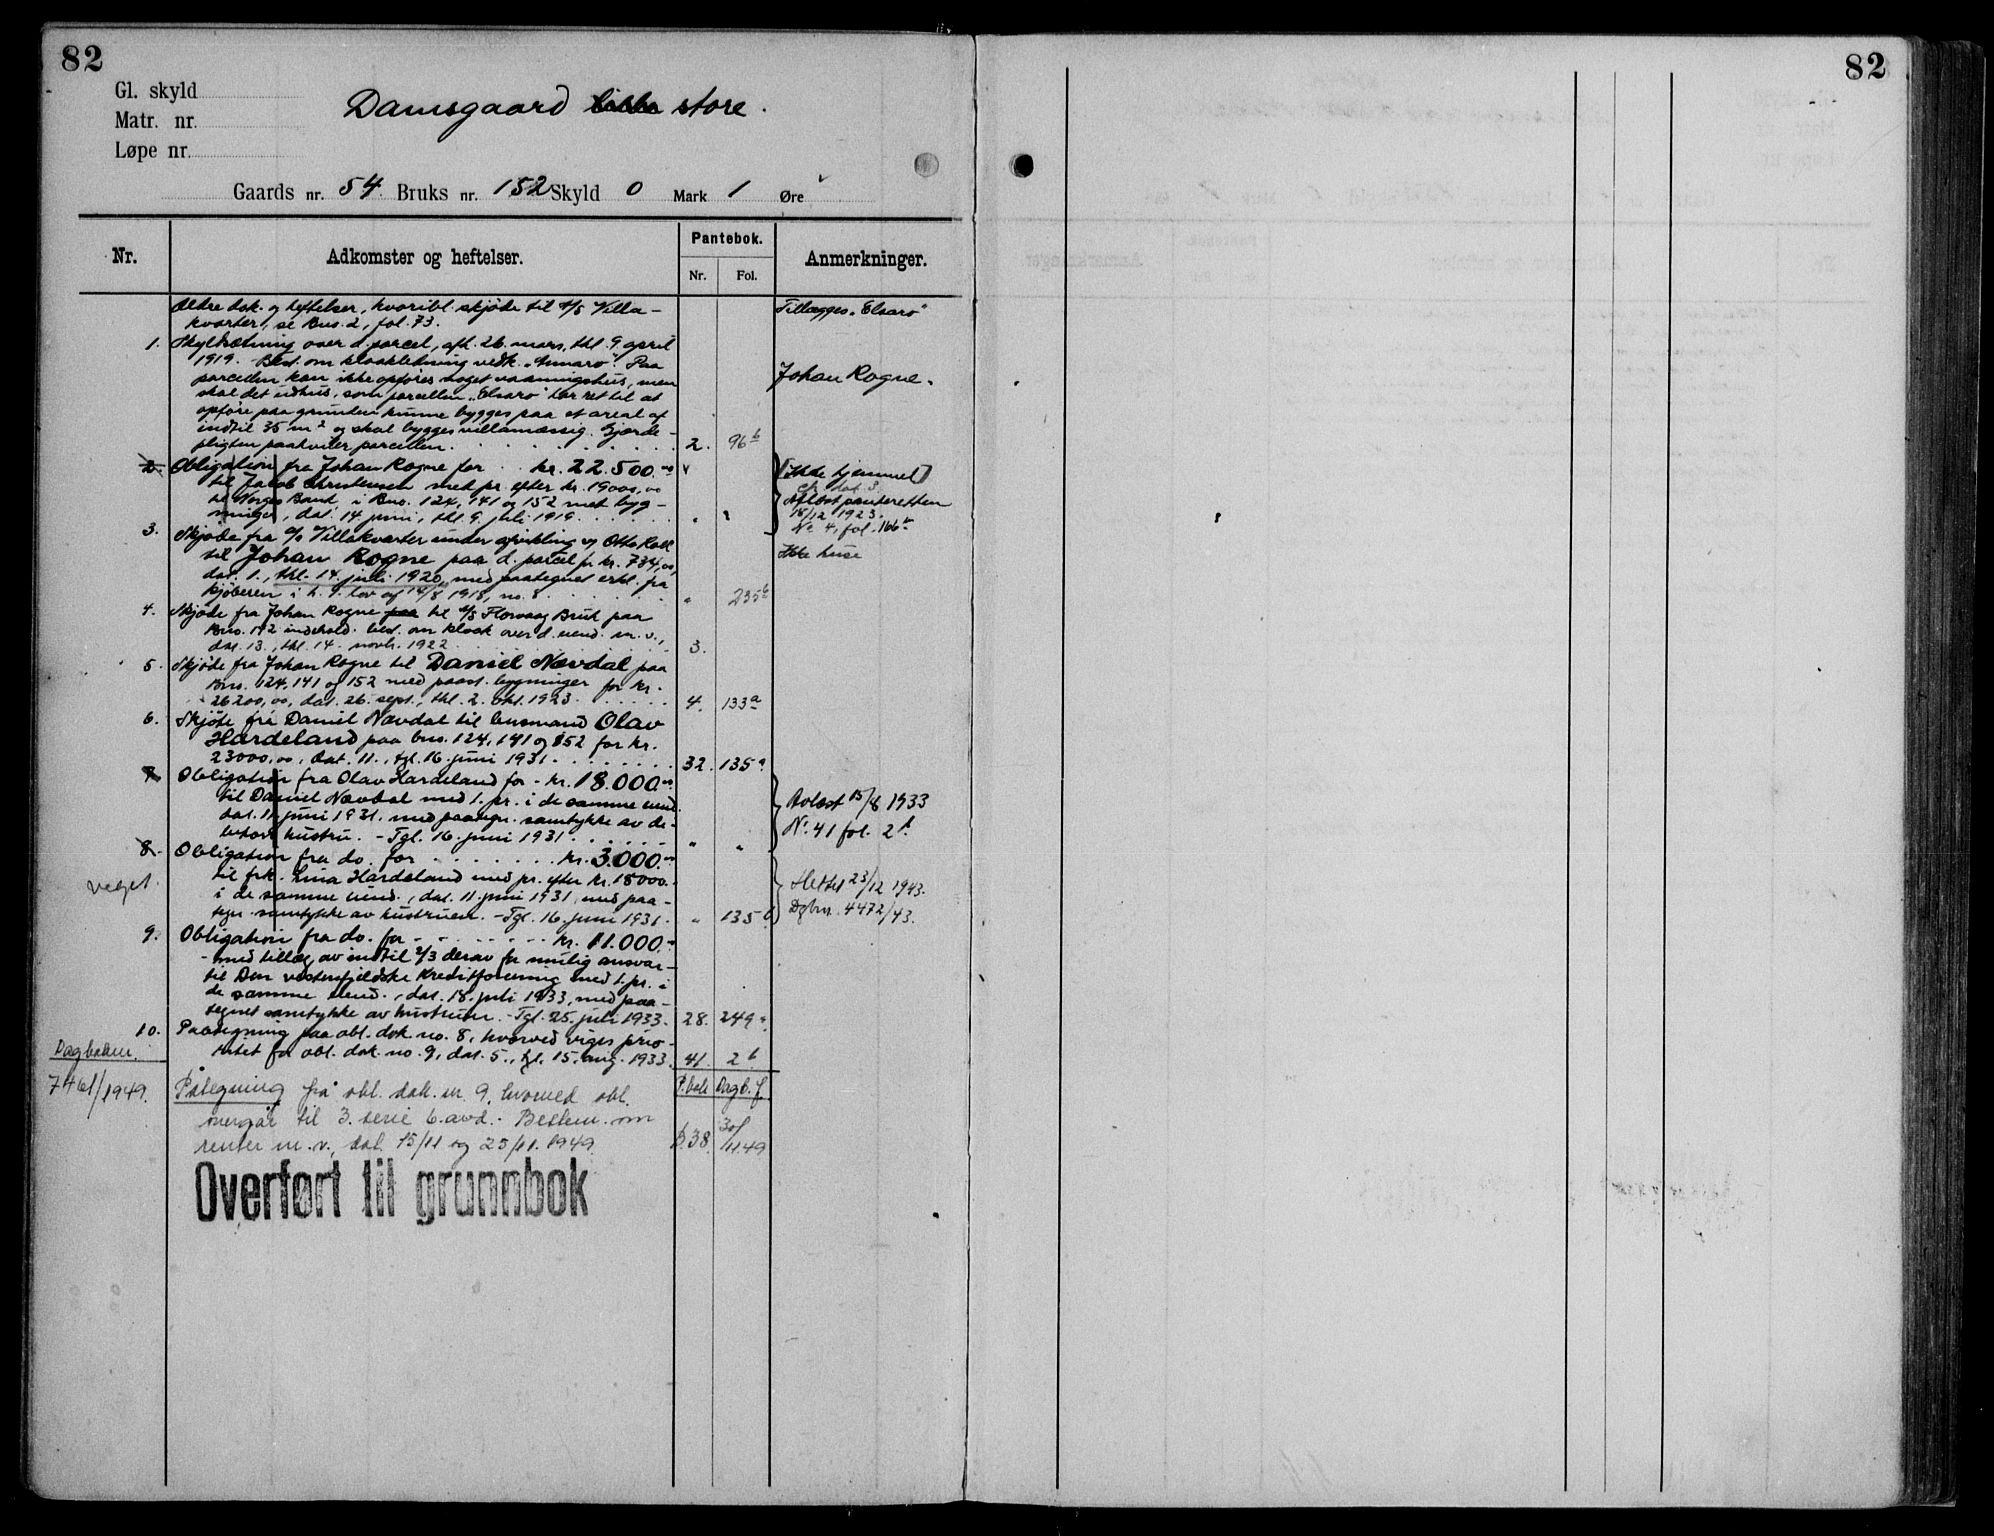 82
82
Gl. skyld
Matr. nr.
Løpe nr.
Damsgaard lille store.
Gaards nr. 54. Bruks nr. 152 Skyld 0 Mark 1 Øre
Nr.
Adkomster og heftelser.
Pantebok.
Nr. Fol.
Anmerkninger.
Ældre dok. og heftelser, hvoribl. skjøde til A/S Villa-
kvarter, se Bno. 2, fol. 73.
Tillægges „Elsaro"
1. Skyldsætning over d. parcel, afh. 26. mars, thl. 9. april
1919. Best. om kloakledning vedk. „Annaro". Paa
parcellen kan ikke opføres noget vaaningshus, men
skal det udhus, som parcellen „Elsaro" har ret til at
opføre paa grunden kunne bygges paa et areal af
indtil 35 m² og skal bygges villamæssig. Gjærde-
pligten paahviler parcellen. 2. 96 b
Johan Rogne.
2. Obligation fra Johan Rogne for kr. 22.500.00
til Jacob Christensen med pr. efter kr. 19000,00
til Norges Bank i Bno. 124, 141 og 152 med byg-
ninger, dat. 14 juni, thl. 9. juli 1919. " "
[Ikke hjemmel]
cfr. dok. 3.
Aflæst panteretten
15/12 1923.
No 4, fol. 166
3. Skjøde fra A/S Villakvarter under afvikling v/ Otto Kall
til Johan Rogne paa d. parcel for kr. 734,00,
dat. 1., thl. 14. juli 1920, med paategnet erkl. fra
kjøberen i h. t. lov af 14/8 1918, no. 8. " 235 b
Ikke huse
4. Skjøde fra Johan Rogne paa til A/S Florvaag Bruk paa
Bno. 192 indehold. best. om kloak over d. eiend. m. v.,
dat. 13., thl. 14. novbr. 1922 3.
5. Skjøde fra Johan Rogne til Daniel Nævdal paa
Bno. 124, 141 og 152 med paast. bygninger for kr.
26200,00, dat. 26. sept., thl. 2. okt. 1923. 4. 133 a
6. Skjøte fra Daniel Nævdal til lensmand Olav
Hardeland paa bno. 124, 141 og 152 for kr.
23000,00, dat. 11., tgl. 16. juni 1931. 32. 135 a
7. Obligation fra Olav Hardeland for kr. 18.000.00
til Daniel Nævdal med 1. pr. i de samme eiend.
dat. 11. juni 1931, med paategn. samtykke av de-
bitors hustru. - Tgl. 16. juni 1931 " "
Avlæst 15/8 1933
Nr. 41 fol. 2 b.
8. Obligation fra do. for kr. 3.000.00
til frk. Lina Hardeland med pr. efter kr. 18000.-
i de samme eiend., dat. 11. juni 1931, med paa-
tegn. samtykke av hustruen. - Tgl. 16. juni 1931. " 135 b
veget.
Slettet 23/12 1943.
Dgbnr. 4472/43.
9. Obligation fra do. for kr. 11.000.-
- med tillæg av indtil 2/3 derav for mulig ansvar -
til Den vestenfjeldske Kreditforening med 1. pr. i
de samme eiend., dat. 18. juli 1933, med paa-
tegnet samtykke av hustruen. - Tgl. 25. juli 1933. 28. 249 a.
10. Paategning paa obl. dok. no. 8, hvorved viges prio-
ritet for obl. dok. no. 9, dat. 5., tgl. 15. aug. 1933. 41. 2 b
Dagboknr.
7461/1949.
P.bok Dagb. f.
Påtegning på obl. dok. nr. 9, hvorved obl.
overgår til 3. serie 6. avd. - Bestem. om
renter m. v., dat. 15/11 og 25/11. 1949. B.38. 30/11 49
Overført til grunnbok